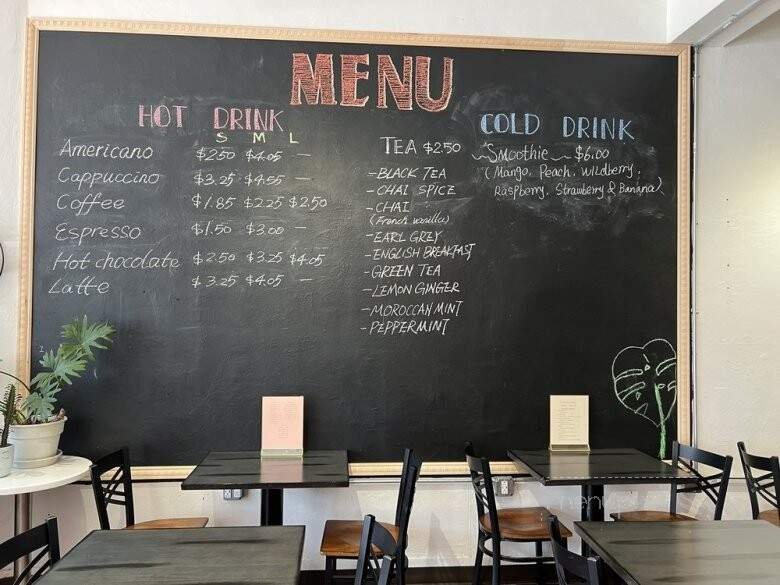 MENU
HOT DRINK
S M L
Americano $2.50 $4.05 —
Cappuccino $3.25 $4.55 —
Coffee $1.85 $2.25 $2.50
Espresso $1.50 $3.00 —
Hot chocolate $2.50 $3.25 $4.05
Latte $3.25 $4.05 —
TEA $2.50
-BLACK TEA
-CHAI SPICE
-CHAI
(French vanilla)
-EARL GREY
-ENGLISH BREAKFAST
-GREEN TEA
-LEMON GINGER
-MOROCCAN MINT
-PEPPERMINT
COLD DRINK
Smoothie $6.00
(Mango, Peach, Wildberry,
Raspberry, Strawberry & Banana)